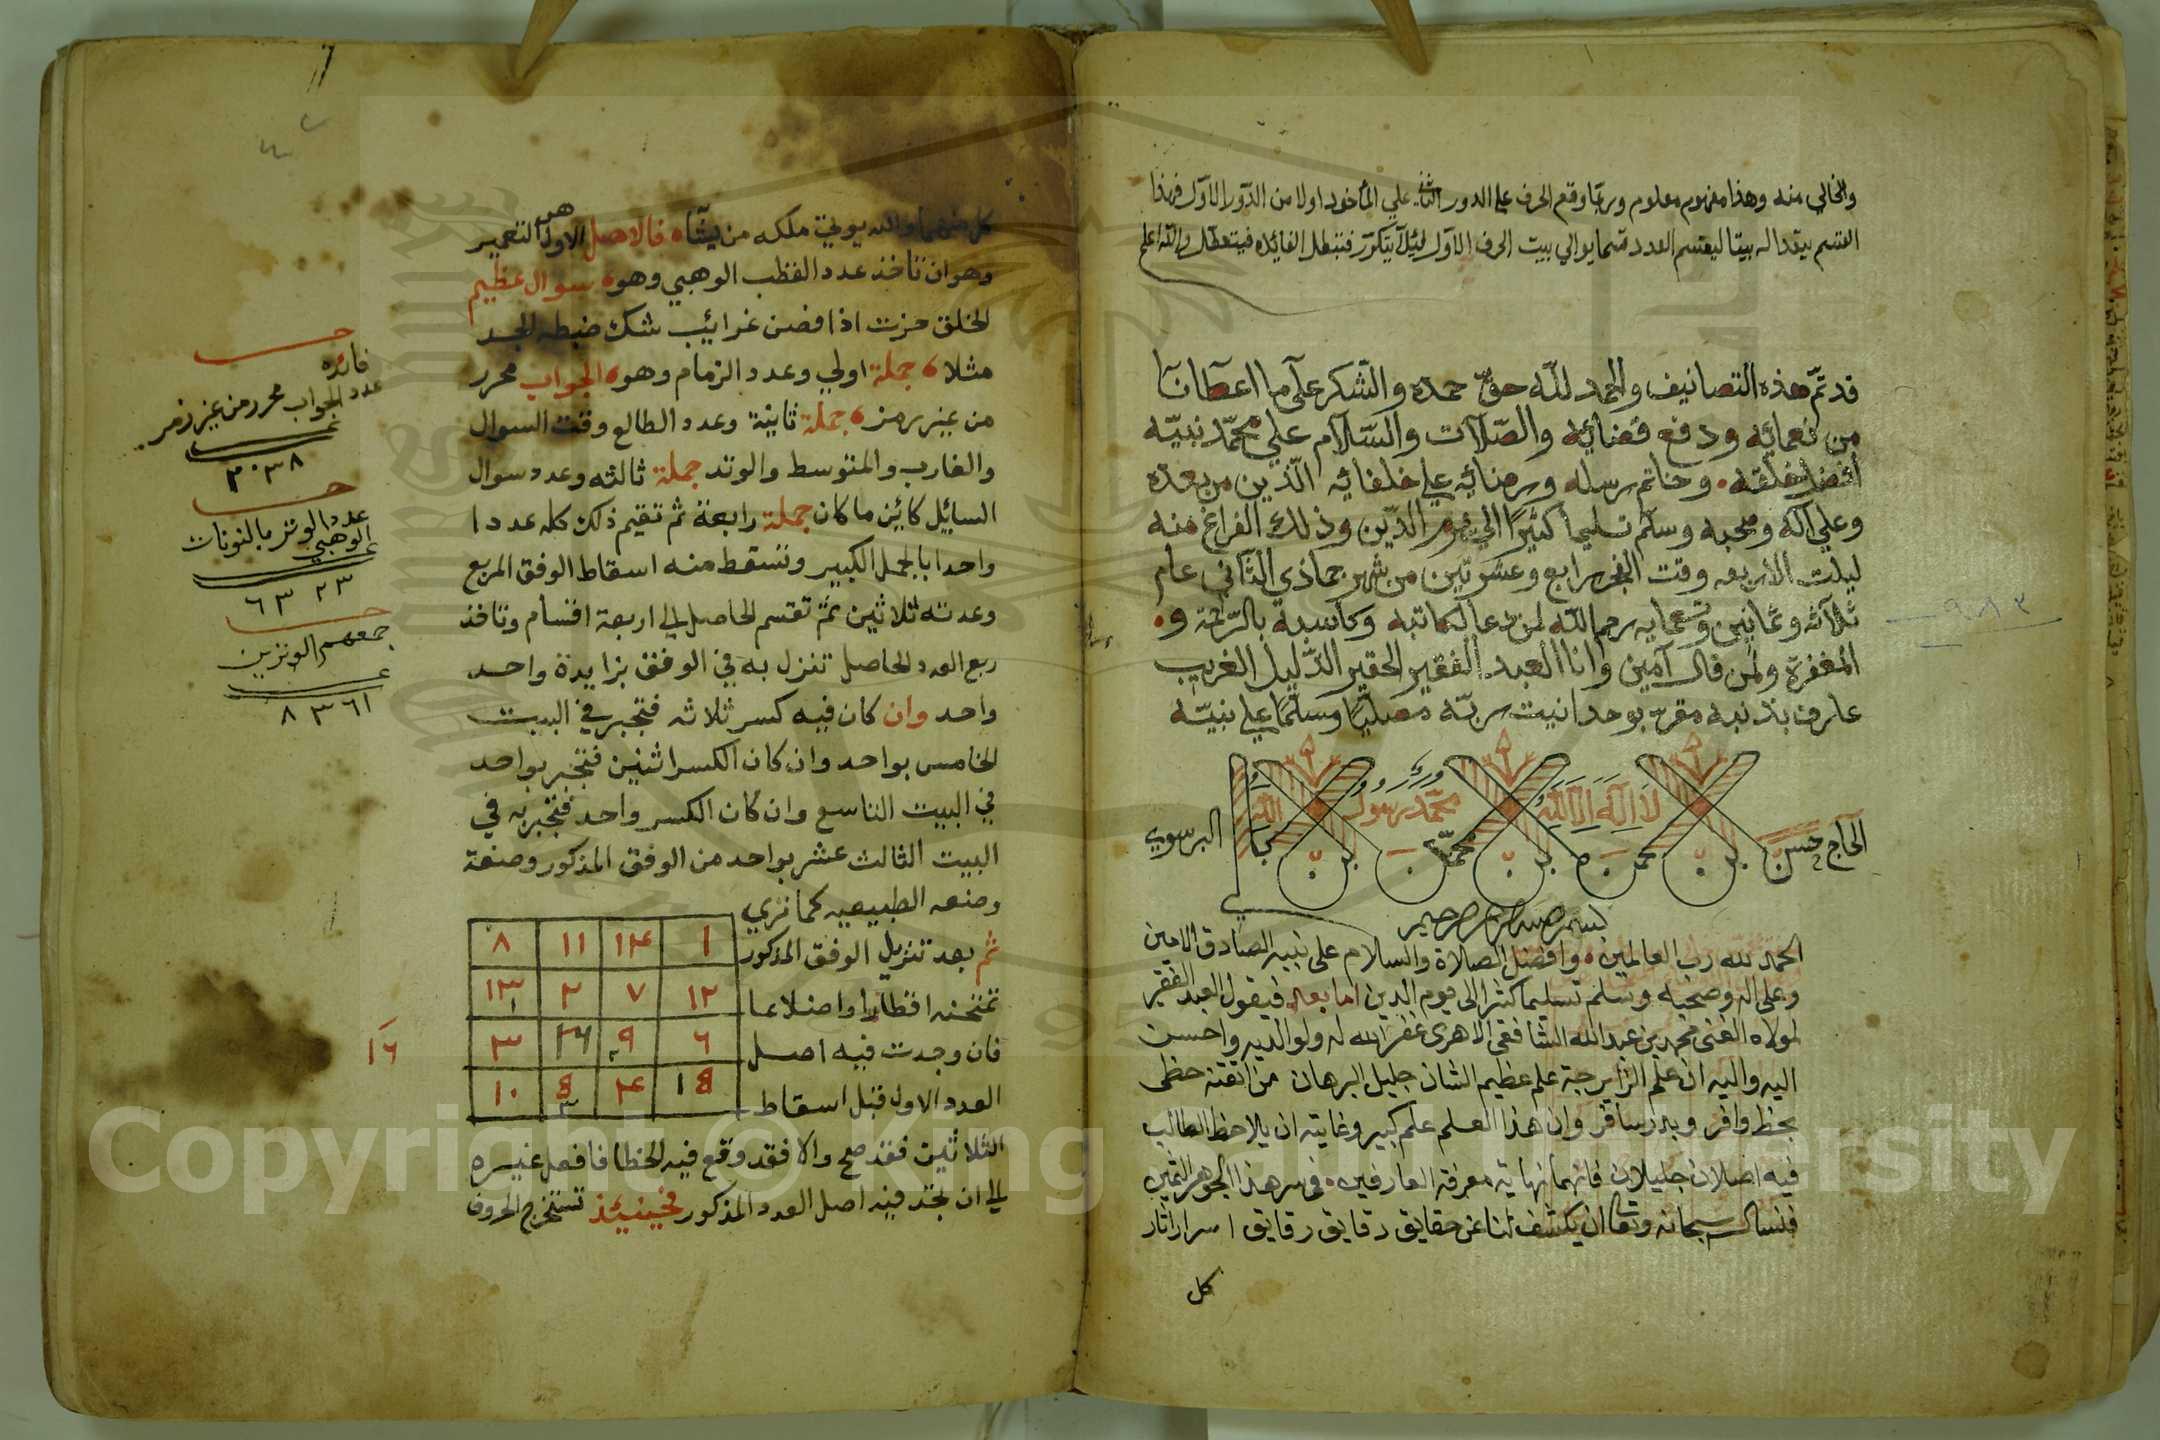 والخالي منه وهذا مفهوم معلوم وربما وقع الحرف على الدور الثاني علي المأخود اولا من الدور الاول فهذا
القسم بيقد اله بيتا ليقسم العدد قسما يوالي بيت الحرف الاول ليلا يتكرر فتبطل الفائده فيتعطل والله اعلم
قد تم هذه التصانيف والحمد لله حق حمده والشكر على ما اعطانا
من نعمائه ودفع قضائه والصلات والسلام علي محمد نبيه
افضل خلقه وخاتم رسله ورضائه علي خلفائه الذين من بعده
وعلي اله وصحبه وسلم تسليما كثيرا الي يوم الدين وذلك الفراغ منه
ليلت الاربعه وقت الفجر رابع وعشرين من شهر جماذي الثاني عام
ثلاثه وثمانين وتسعمايه رحم الله لمن دعا لكاتبه وكاسبه بالرحمة و
المغفرة ولمن قال آمين وانا العبد الفقير الحقير الذليل الغريب
عارف بذنبه مقر بوحدانيت ربه مصليا وسلما علي نبيه
٩٨٣
لا اله الا الله محمد رسول الله
الحاج حسن بن بن محمد بن البرسوي
بسم الله الرحمن الرحيم
الحمد لله رب العالمين وافضل الصلاة والسلام على نبيه الصادق الامين
وعلى اله وصحبه وسلم تسليما كثيرا الى يوم الدين اما بعد فيقول العبد الفقير
لمولاه الغنى محمد بن عبد الله الشافعى الاهرى غفر الله له ولوالديه واحسن
اليه واليه ان علم الزايرجة علم عظيم الشان جليل البرهان من اتقنه حظى
بحظ وافر وان هذا العلم علم كبير وغايته ان يلاحظ الطالب
فيه اصلان جليلان فانهما نهاية معرفة العارفين في سر هذا الجوهر الثمين
فنسال سبحانه وتعا ان يكشف لنا عن حقايق دقايق رقايق اسرار اثار
كل
كل منهما والله يوتي ملكه من يشاء فالاصل الاول هو التعمير
وهو ان تاخذ عدد القطب الوهبي وهو سوال عظيم
الخلق حزت اذا فصن غرائب شك ضبطه الجد
مثلا جملة اولي وعدد الزمام وهو الجواب محرر
من غير رمز جملة ثانية وعدد الطالع وقت السوال
والغارب والمتوسط والوتد جملة ثالثه وعدد سوال
السايل كائن ما كان جملة رابعة ثم تقيم ذلك كله عددا
واحدا بالجمل الكبير وتسقط منه اسقاط الوفق المربع
وعدته ثلاثين ثم تقسم الحاصل الي اربعة اقسام وتاخذ
ربع العدد الحاصل تنزل به في الوفق بزايدة واحد
واحد وان كان فيه كسر ثلاثه فتجبر في البيت
الخامس بواحد وان كان الكسر اثنين فتجبر بواحد
في البيت التاسع وان كان الكسر واحد فتجبر به في
البيت الثالث عشر بواحد من الوفق المذكور وصنعة
وصنعه الطبيعيه كما تري
ثم بعد تنزيل الوفق المذكور
تمتحنه اقطارا واضلاعا
فان وجدت فيه اصل
العدد الاول قبل اسقاط
الثلاثين فقد صح والا فقد وقع فيه الخطا فافعل غيره
الي ان تجد فيه اصل العدد المذكور فحينيئذ تستخرج الحروف
١ ١٤ ١١ ٨
١٢ ٧ ٢ ١٣
٦ ٩ ١٦ ٣
١٥ ٤ ٥ ١٠
١٦
فائده
عدد الجواب محرر من غير رمز
٣٠٣٨
عدد الوتر بالنونات
الوهبي
٦٣٢٣
جمعهم الوترين
٨٣٦١
Copyright © King Saud University